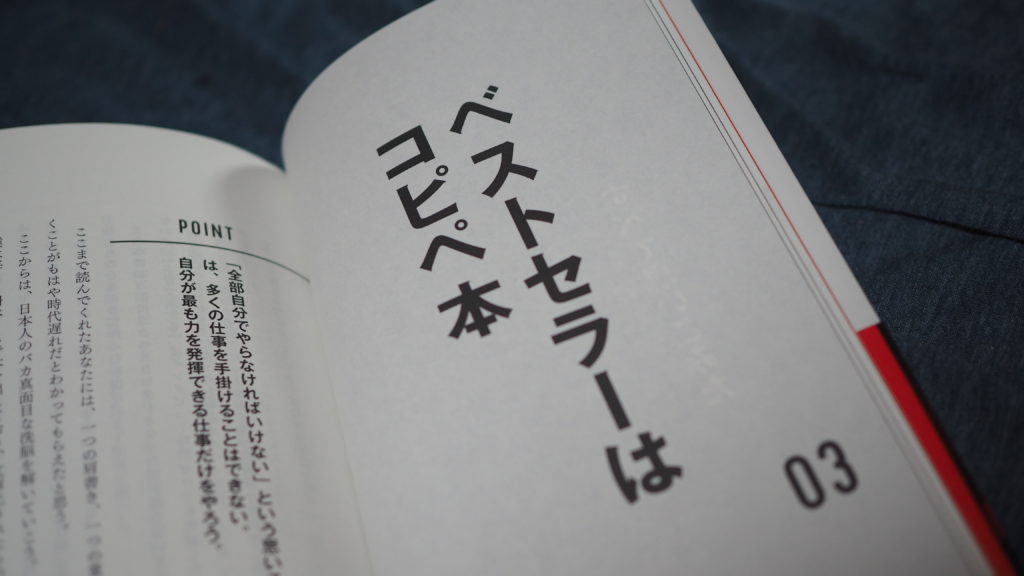 03
ベストセラーは
コピペ本
POINT
「全部自分でやらなければいけない」という思い
は、多くの仕事を手掛けることはできない。
自分が最も力を発揮できる仕事だけをやろう。
ここまで読んでくれたあなたには、一つの肩書き、一つの
くことがもはや時代遅れだとわかってもらえたと思う。
ここからは、日本人のバカ真面目な洗脳を解いていこう。